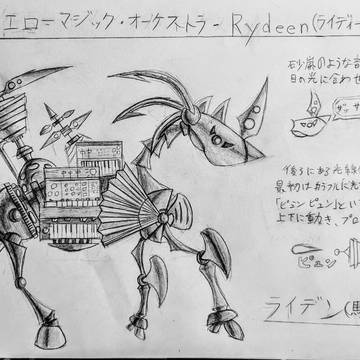 エローマジック・オーケストラ - Rydeen (ライディー
砂嵐のような部
目の光に合わせ
後ろにある光線
最初はカラフルに光
「ピュン ピュン」とい
上下に動き、プロ
ピュン
ライデン(馬